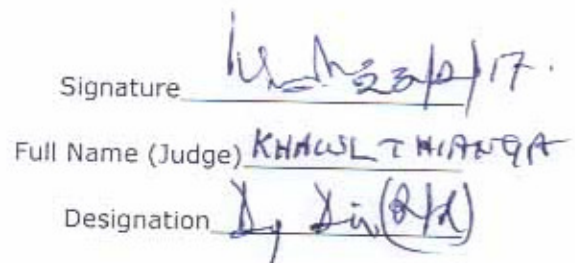 Signature 23/2/17.
Full Name (Judge) KHAWLTHIANGA
Designation Dy Dir (R/d)